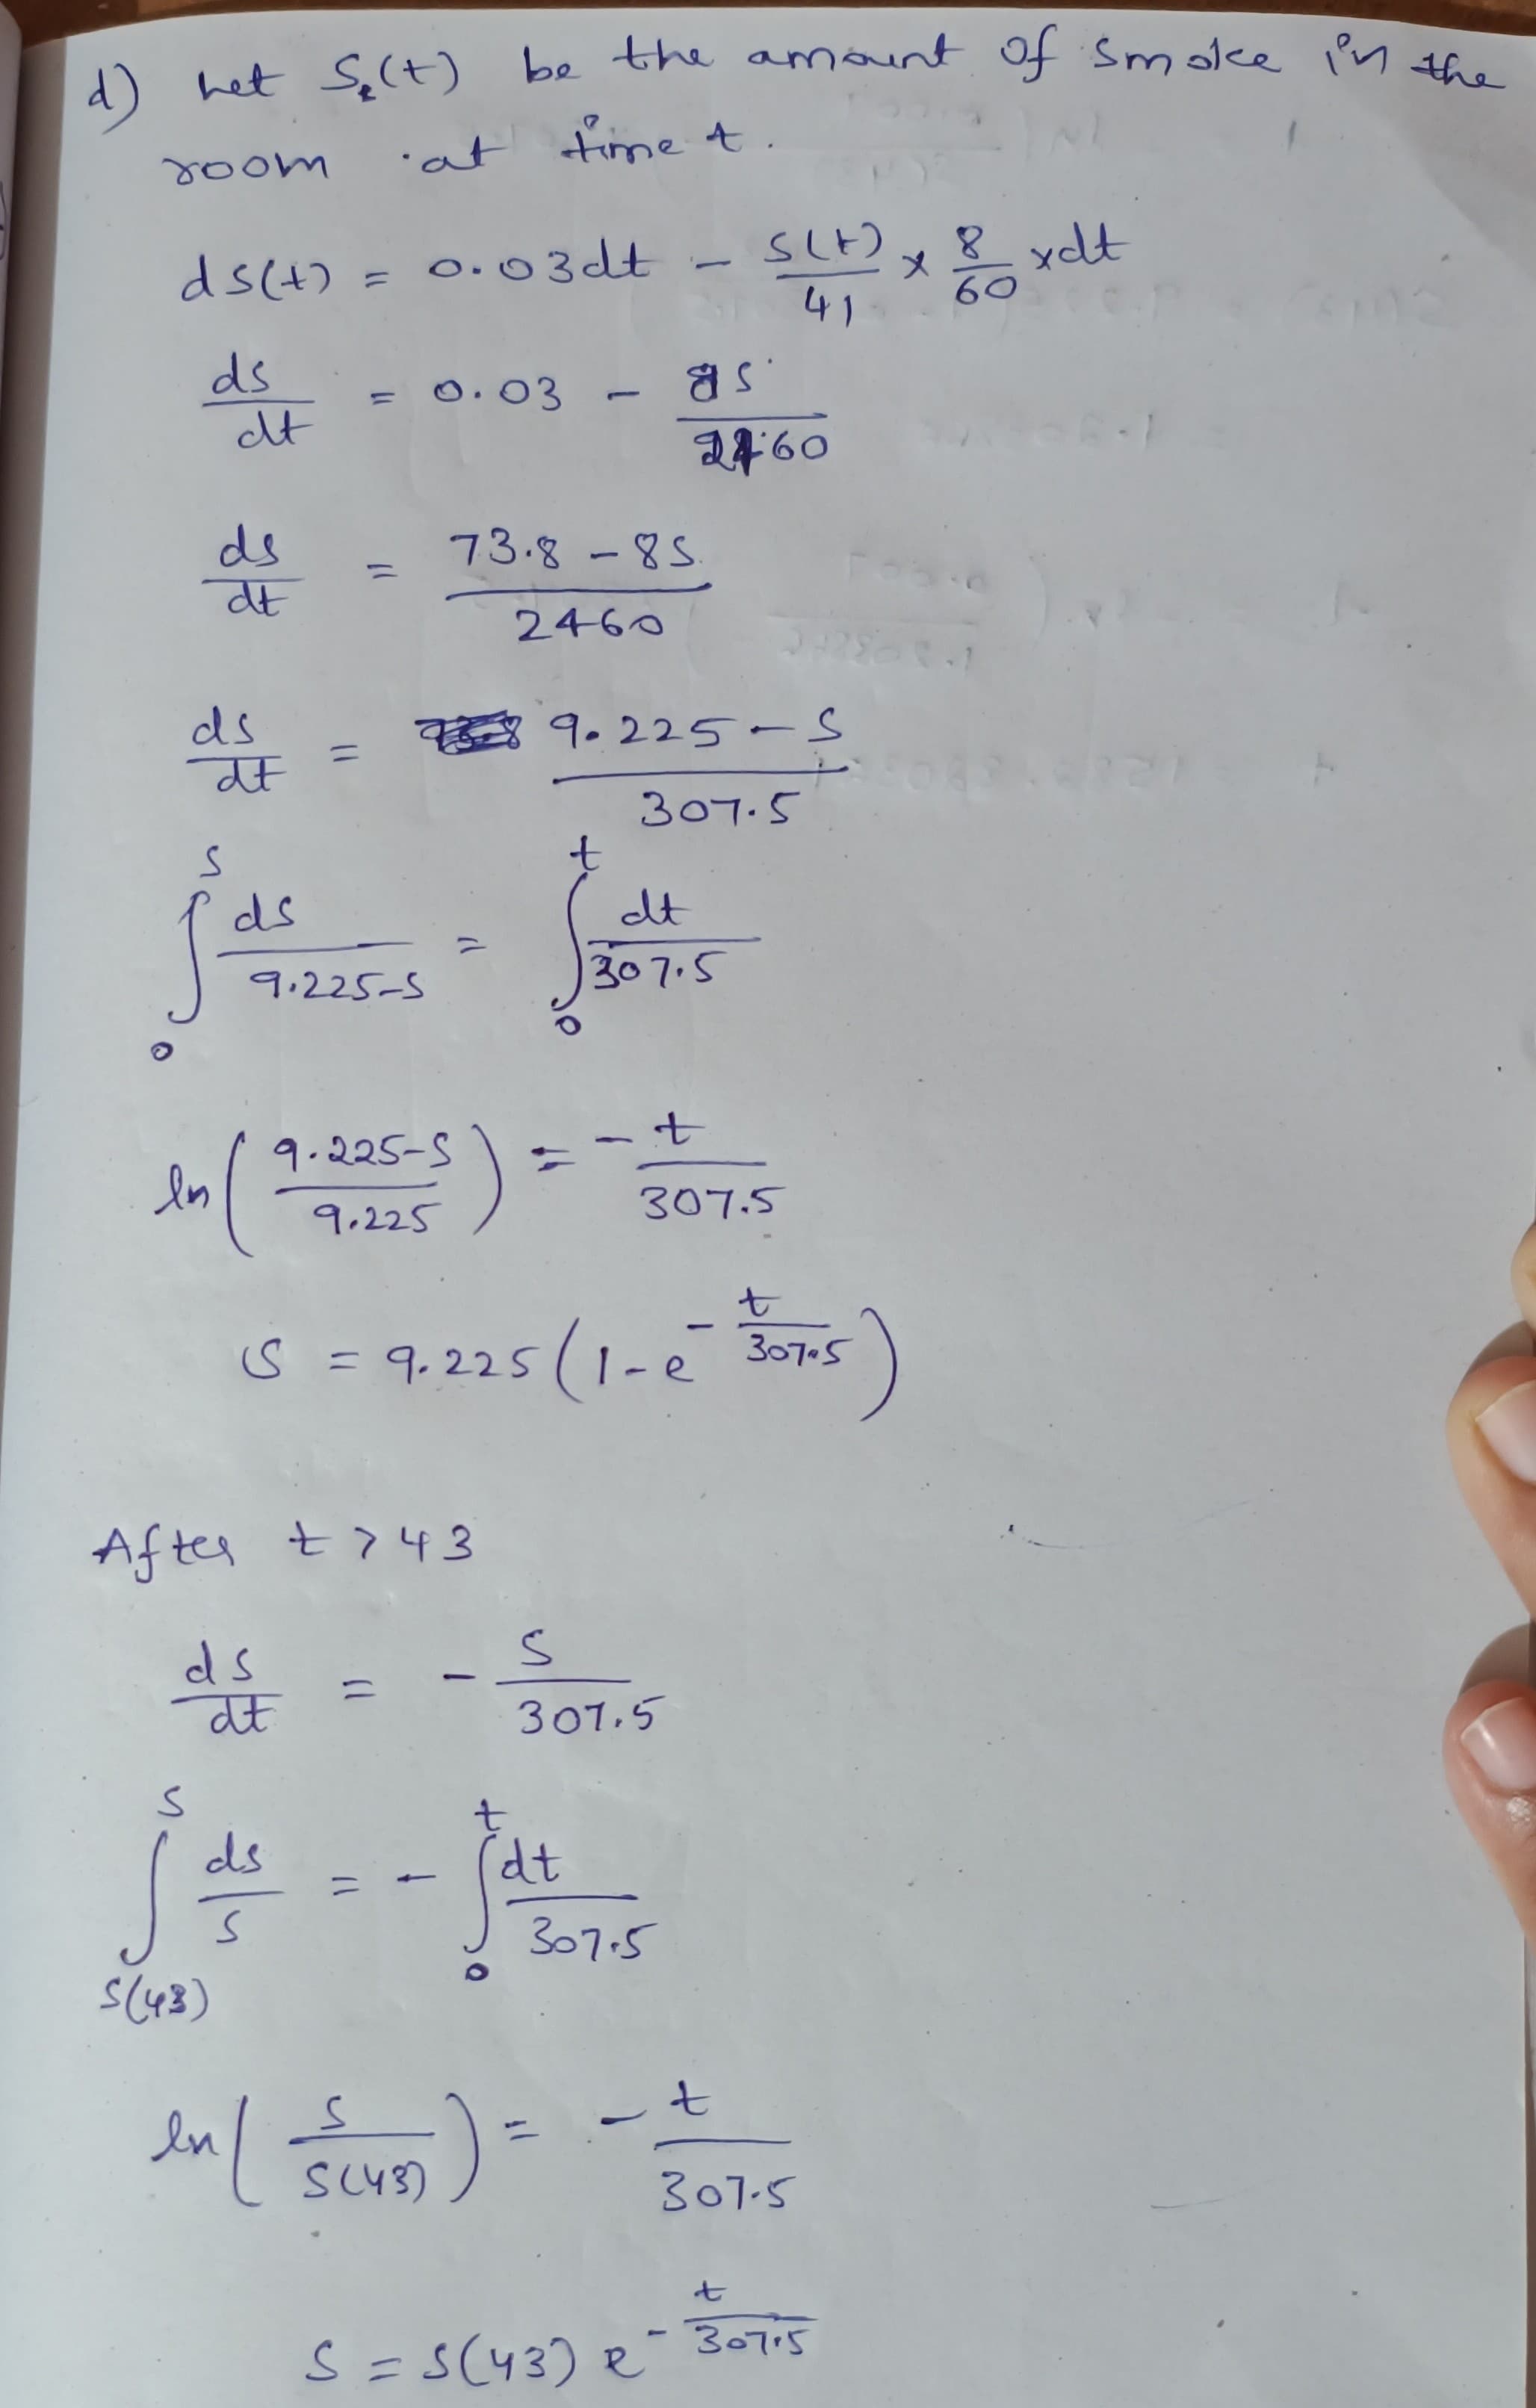 d) Let S(t) be the amount of smoke in the
room at time t.
ds(t) = 0.03dt - S(t)/41 × 8/60 × dt
ds/dt = 0.03 - 8S/2460
ds/dt = 73.8 - 8S/2460
ds/dt = 9.225 - S/307.5
∫₀^S ds/9.225-S = ∫₀^t dt/307.5
ln(9.225-S/9.225) = -t/307.5
S = 9.225(1-e^-t/307.5)
After t > 43
ds/dt = -S/307.5
∫_S(43)^S ds/S = -∫₀^t dt/307.5
ln(S/S(43)) = -t/307.5
S = S(43) e^-t/307.5